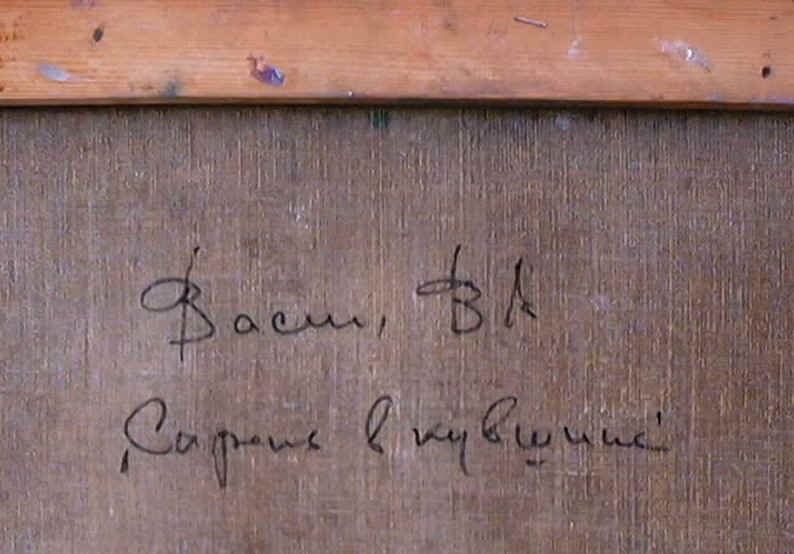 Васин, В А
"Сирень в кувшине"